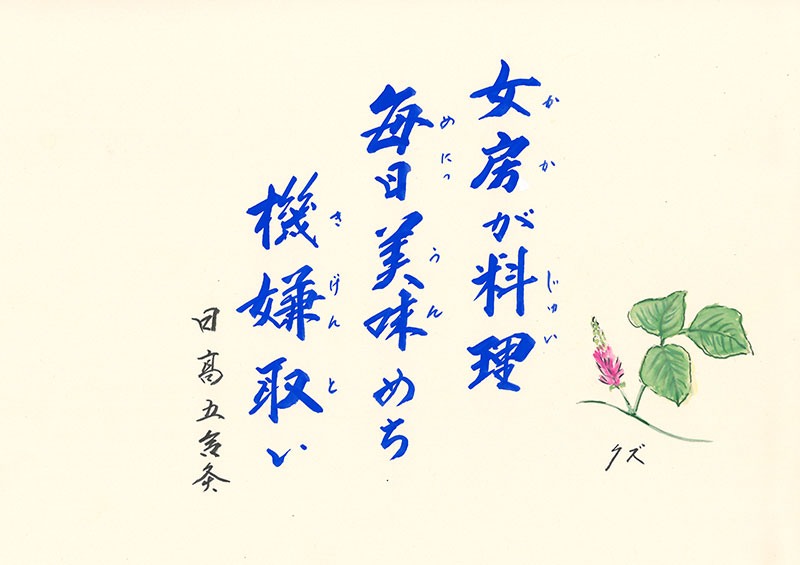 女房が料理
かか じゅい
毎日美味めち
めにっ うん
機嫌取い
きげん と
日高
クズ